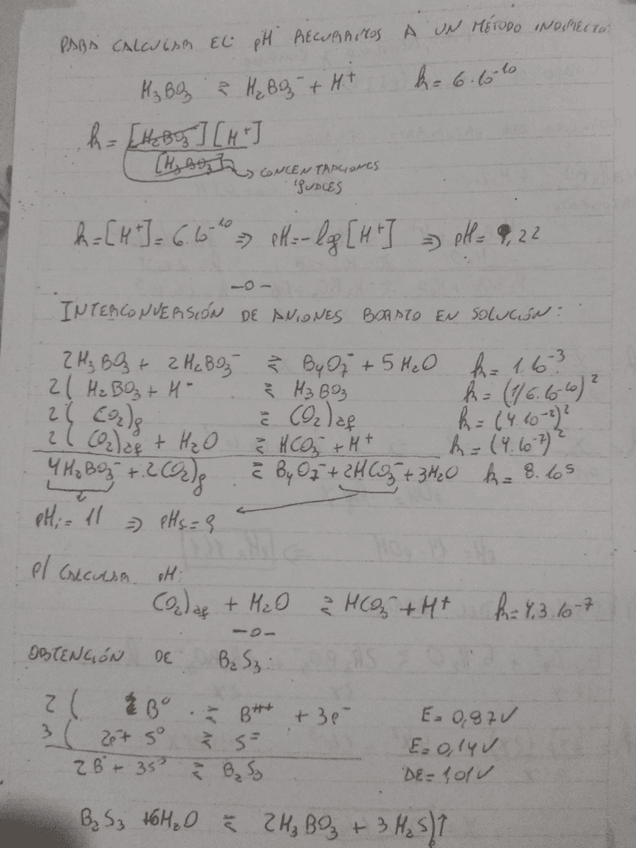 PARA CALCULAR EL pH RECURRIMOS A UN MÉTODO INDIRECTO:
H₃BO₃ ⇄ H₂BO₃⁻ + H⁺ k= 6·10⁻¹⁰
k = [H₂BO₃⁻][H⁺]
[H₃BO₃] → CONCENTRACIONES
IGUALES
k=[H⁺]= 6·10⁻¹⁰ ⇒ pH=-lg[H⁺] ⇒ pH= 9,22
—o—
INTERCONVERSIÓN DE ANIONES BORATO EN SOLUCIÓN:
2H₃BO₃ + 2H₂BO₃⁻ ⇄ B₄O₇⁼ + 5H₂O k= 1·10⁻³
2( H₂BO₃⁻ + H⁺ ⇄ H₃BO₃ k= (1/6·10⁻¹⁰)²
2( (CO₂)g ⇄ (CO₂)aq k= (4·10⁻²)²
2( (CO₂)aq + H₂O ⇄ HCO₃⁻ + H⁺ k= (4·10⁻⁷)²
4H₂BO₃⁻ + 2(CO₂)g ⇄ B₄O₇⁼ + 2HCO₃⁻ + 3H₂O k= 8·10⁵
pHi = 11 ⇒ pHf = 9
p/ CALCULAR pH:
(CO₂)aq + H₂O ⇄ HCO₃⁻ + H⁺ k= 4,3·10⁻⁷
—o—
OBTENCIÓN DE B₂S₃:
2( B⁰ ⇄ B⁺⁺⁺ + 3e⁻ E= 0,87V
3( 2e⁻ + S⁰ ⇄ S⁼ E= 0,14V
2B⁰ + 3S⁰ ⇄ B₂S₃ DE= 1,01V
B₂S₃ + 6H₂O ⇄ 2H₃BO₃ + 3H₂S)↑